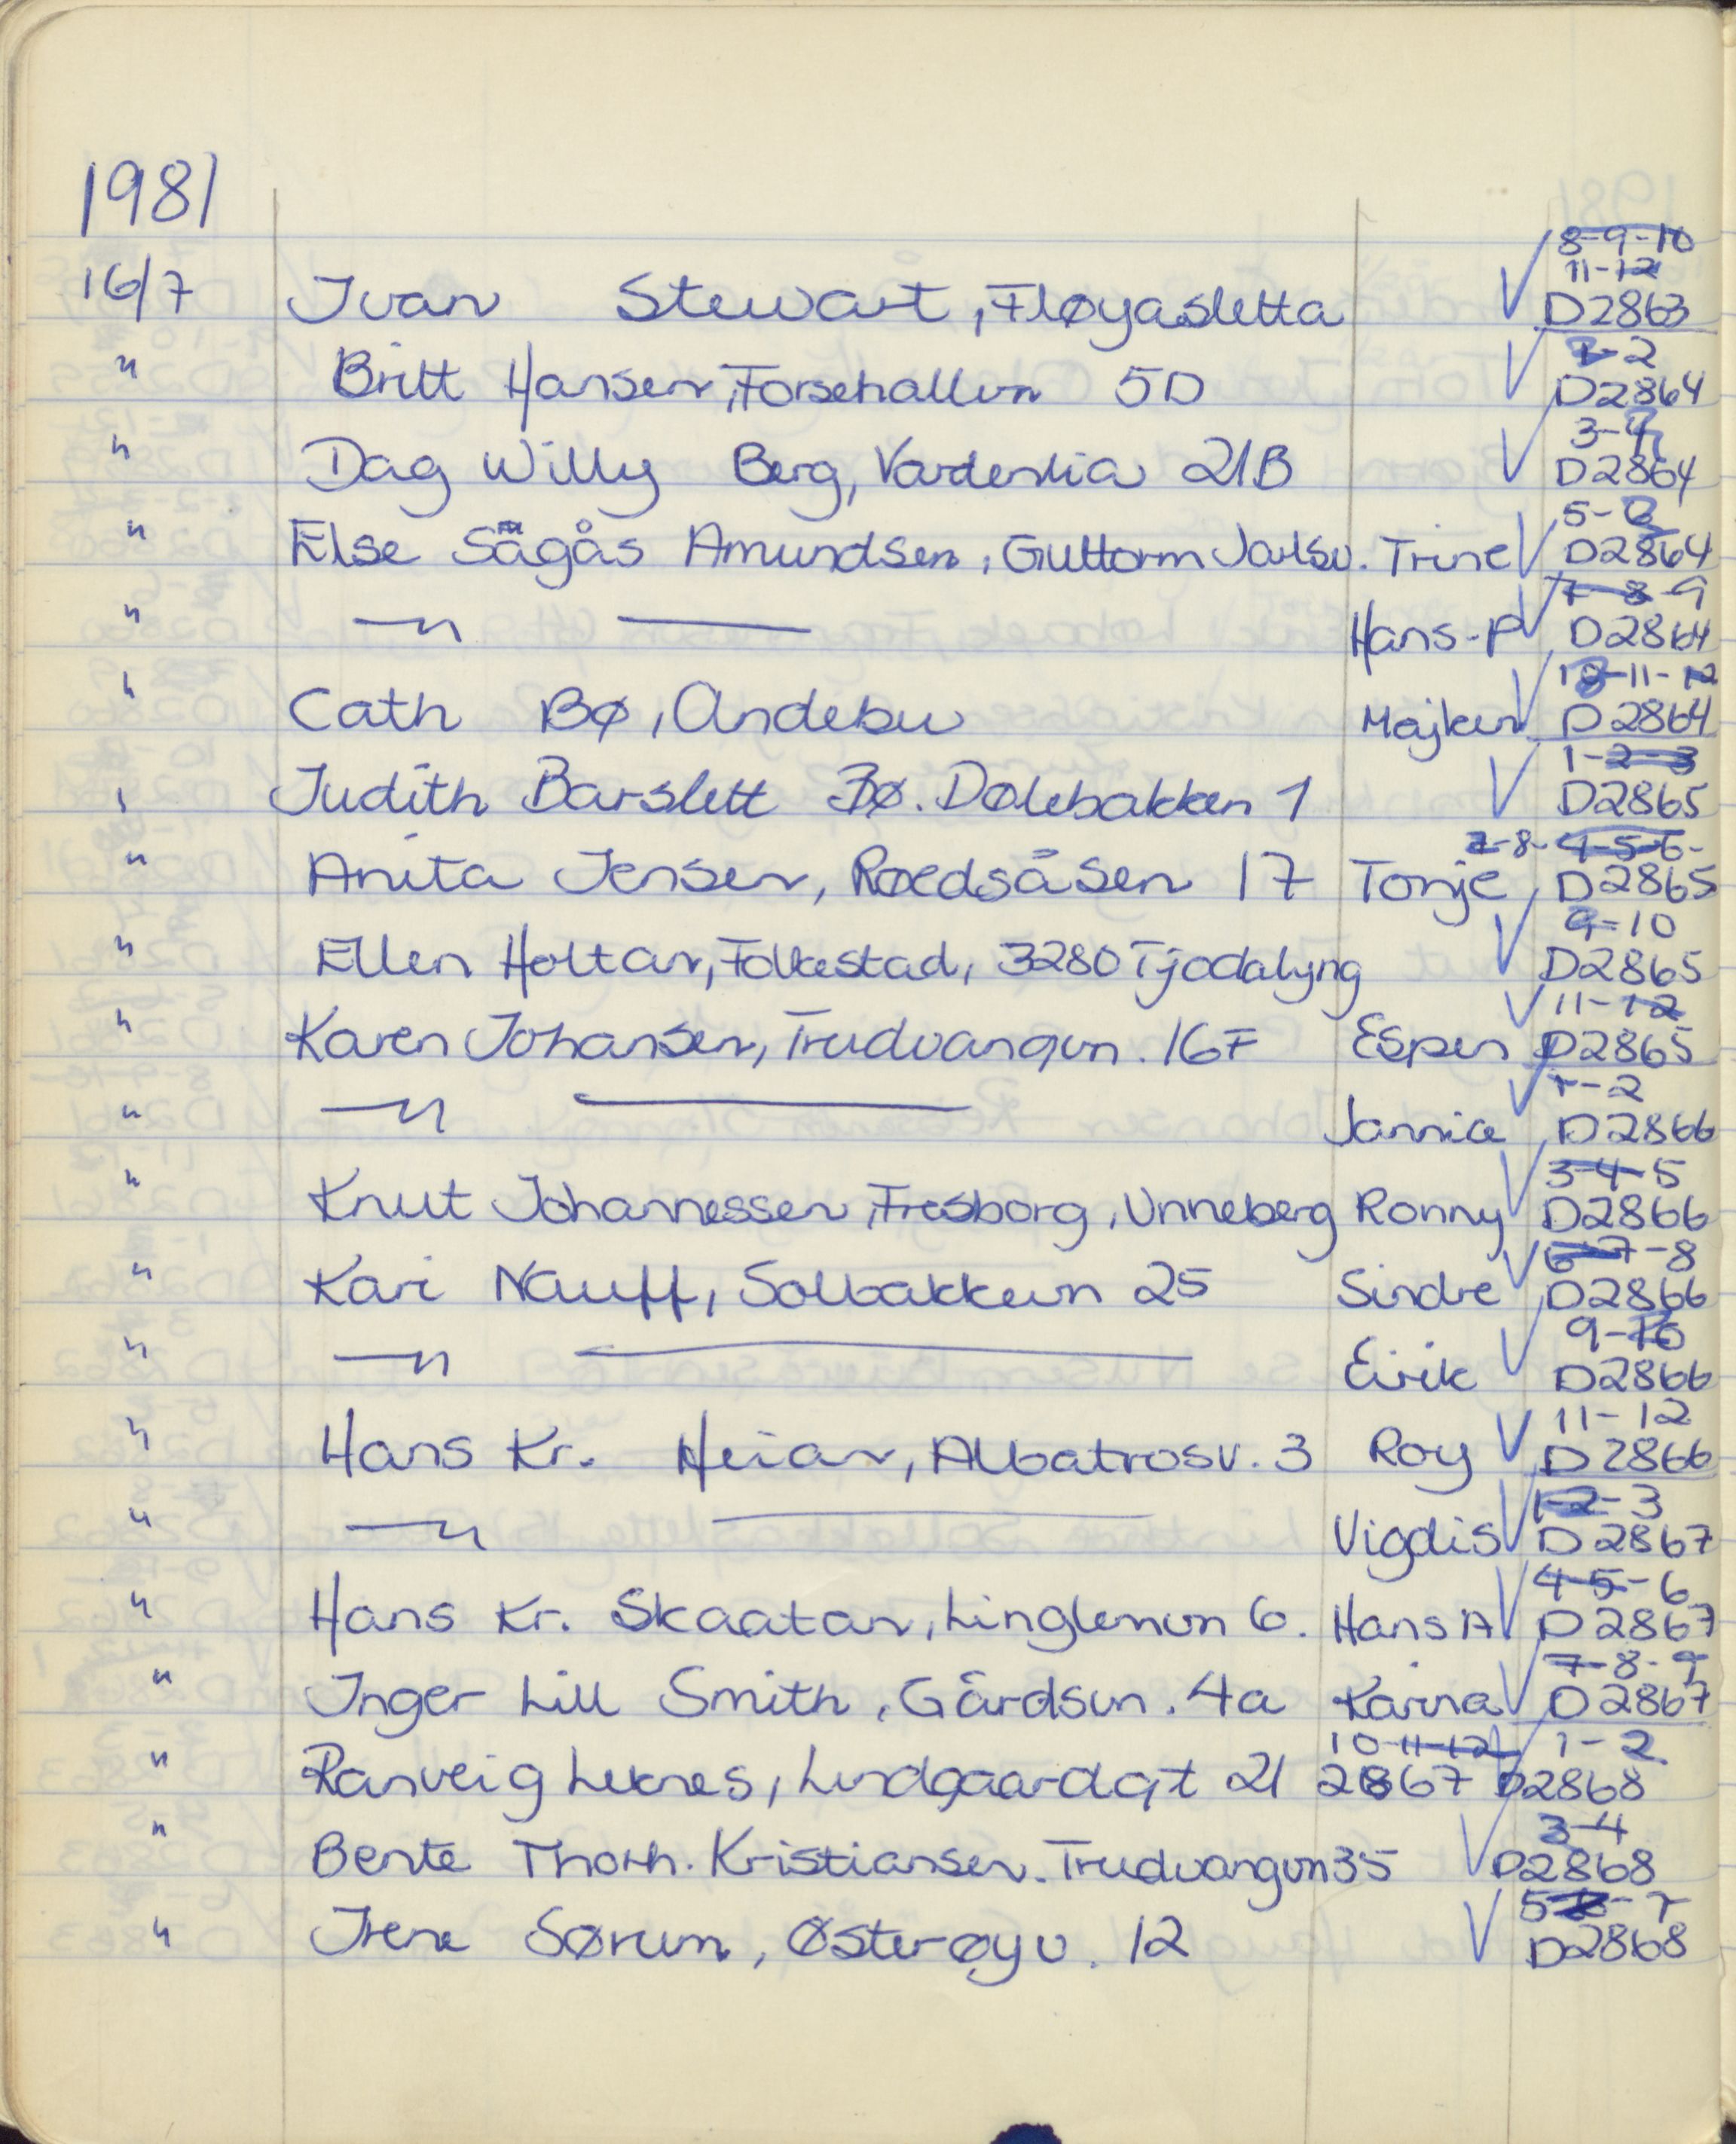 1981
8-9-10
11-12
16/7 Ivan Stewart, Fløyasletta D2863
1-2
" Britt Hansen, Forsehallvn 5D D2864
3-4
" Dag Willy Berg, Vardenlia 21B D2864
5-6
" Else Sågås Amundsen, Guttorm Jarlsv. Trine D2864
7-8-9
" —"— Hans-P D2864
10-11-12
" Cath Bø, Andebu Majken D2864
1-2-3
" Judith Barslett Bø. Dølebakken 1 D2865
7-8-4-5-6-
" Anita Jensen, Roedsåsen 17 Tonje D2865
9-10
" Ellen Holtan, Folkestad, 3280 Tjodalyng D2865
11-12
" Karen Johansen, Trudvangvn. 16F Espen D2865
1-2
" —"— Jannice D2866
3-4-5
" Knut Johannessen, Fresborg, Unneberg Ronny D2866
6-7-8
" Kari Nauff, Solbakkevn 25 Sindre D2866
9-10
" —"— Eirik D2866
11-12
" Hans Kr. Heian, Albatrosv. 3 Roy D2866
1-2-3
" —"— Vigdis D2867
4-5-6
" Hans Kr. Skaatan, Linglemvn 6. Hans A D2867
7-8-9
" Inger Lill Smith, Gårdsvn. 4a Karina D2867
10-11-12 1-2
" Ranveig Leknes, Lindgaardgt 21 2867 D2868
3-4
" Bente Thorh. Kristiansen. Trudvangvn 35 D2868
5-6-7
" Irene Sørum, Østerøyv. 12 D2868